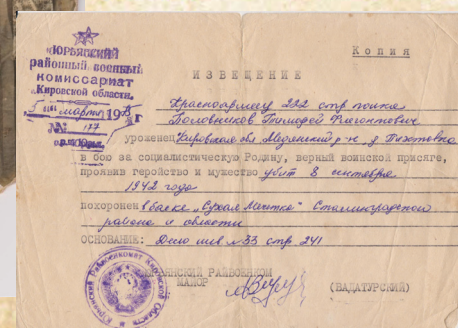 ЮРЬЯНСКИЙ
районный военный
комиссариат
Кировской области.
5 марта 197 г
№ 177
Копия
ИЗВЕЩЕНИЕ
Красноармеец 222 стр полка
Половников Тимофей
уроженец Кировская обл Медянский р-н д
в бою за социалистическую Родину, верный воинской присяге,
проявив геройство и мужество убит 8 сентября
1942 года
похоронен в балке „Сухая Мечетка" Сталинградской
района и области
ОСНОВАНИЕ: Дело инв №33 стр 241
РАЙВОЕНКОМ
МАЙОР (ВАДАТУРСКИЙ)